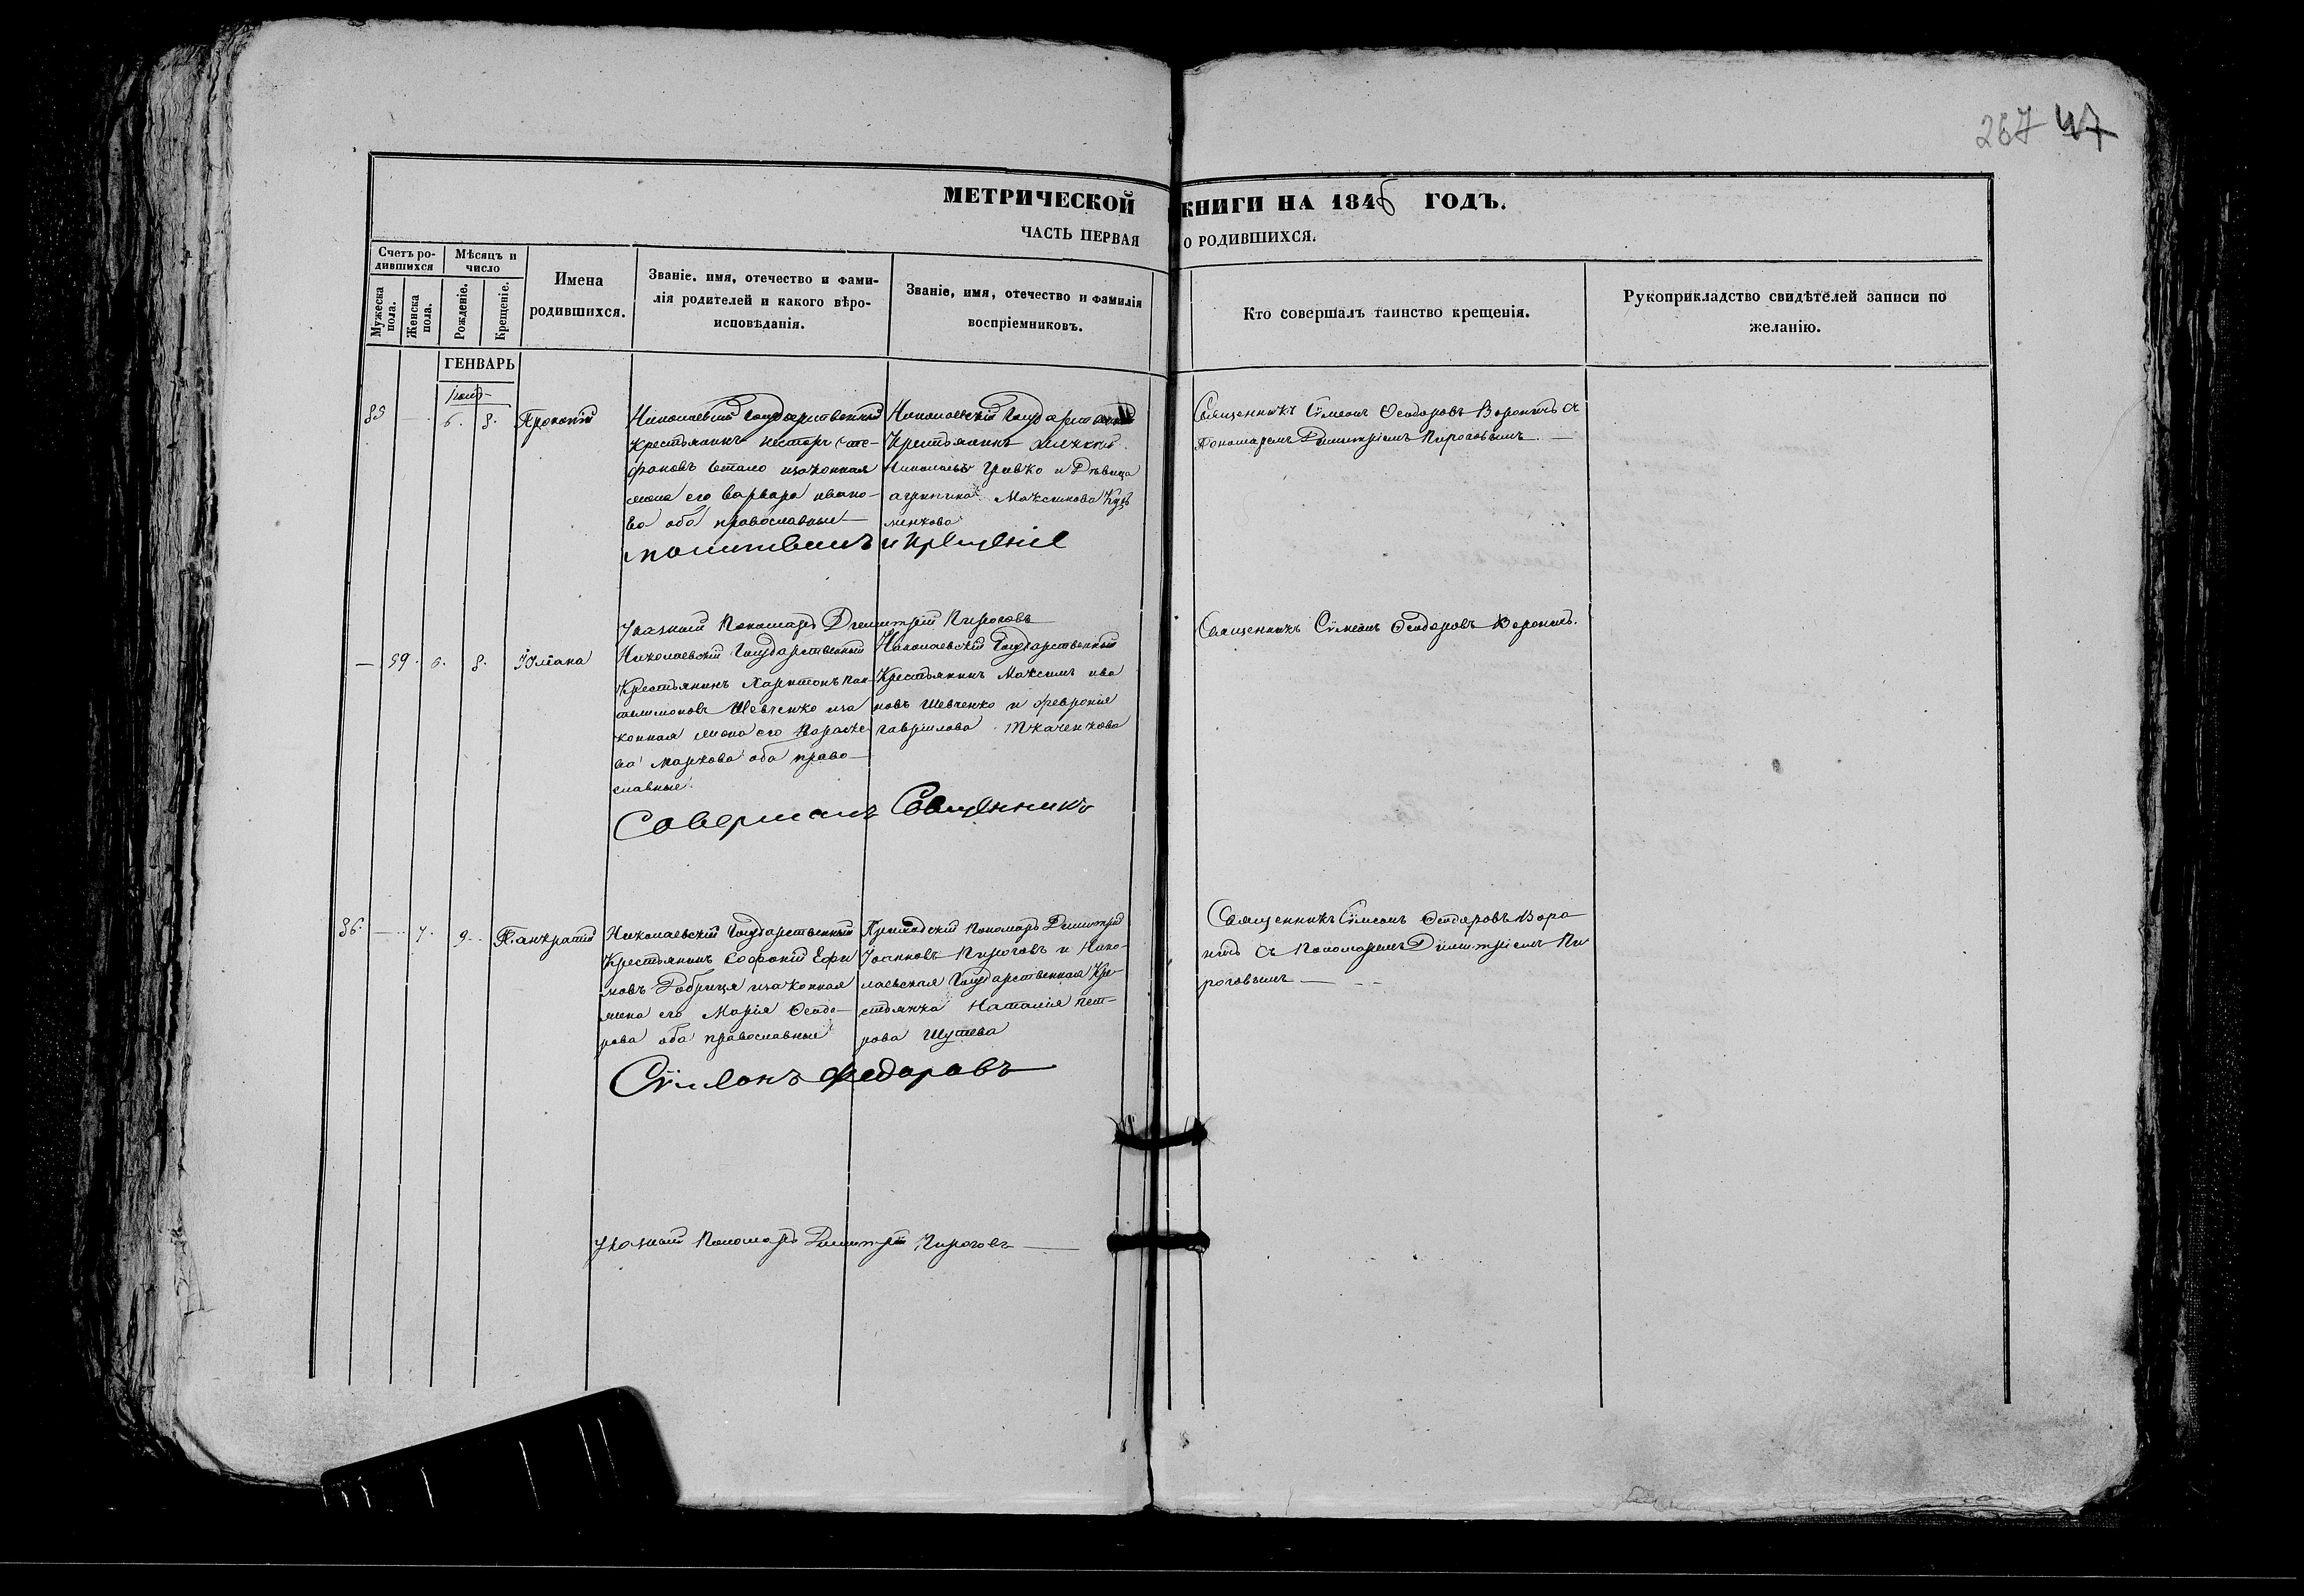 267 47
МЕТРИЧЕСКОЙ КНИГИ НА 1846 ГОДЪ.
ЧАСТЬ ПЕРВАЯ О РОДИВШИХСЯ.
Счетъ ро-
дившихся
Мужеска
пола.
Женска
пола.
Мѣсяцъ и
число
Рожденіе.
Крещеніе.
Имена
родившихся.
Званіе, имя, отечество и фами-
лія родителей и какого вѣро-
исповѣданія.
Званіе, имя, отечество и фамилія
воспріемниковъ.
Кто совершалъ таинство крещенія.
Рукоприкладство свидѣтелей записи по
желанію.
ГЕНВАРЬ
6. 8. Прокопій
Николаевскій Государственный
Крестьянинъ Несторъ Сте-
фановъ изаконная
жена его Варвара ивано-
ва оба православные
Николаевскій
Крестьянинъ
и Дѣвица
Максимова Куз
менкова
Священникъ Сѵмеонъ Ѳеодоровъ Вороничъ съ
Пономаремъ Димитріемъ Пироговымъ.
молитвенъ и крещеніе
Указный Пономарь Димитрій Пироговъ
— 59. 6. 8. Юліана
Николаевскій Государственный
Крестьянинъ Харитонъ Пан-
телимоновъ Шевченко иза
конная жена его Параске
ва Маркова оба право-
славные
Николаевскій Государственный
Крестьянинъ Максимъ ива
новъ Шевченко и февронія
гавріилова Ткаченкова
Священникъ Сѵмеонъ Ѳеодоровъ Вороничъ.
Совершалъ Священникъ
7. 9. Панкратій
Николаевскій Государственный
Крестьянинъ Софроній Ефи
мовъ изаконная
жена его Марія Ѳеодо-
рова оба православные
Приходскій Пономарь Димитрій
Іоанновъ Пироговъ и Нико-
лаевская Государственная Кре-
стьянка Наталія пет-
рова
Священникъ Сѵмеонъ Ѳеодоровъ Воро
ничъ съ Пономаремъ Димитріемъ Пи
роговымъ
Сѵмеонъ Федоровъ
Указный Пономарь Димитрій Пироговъ